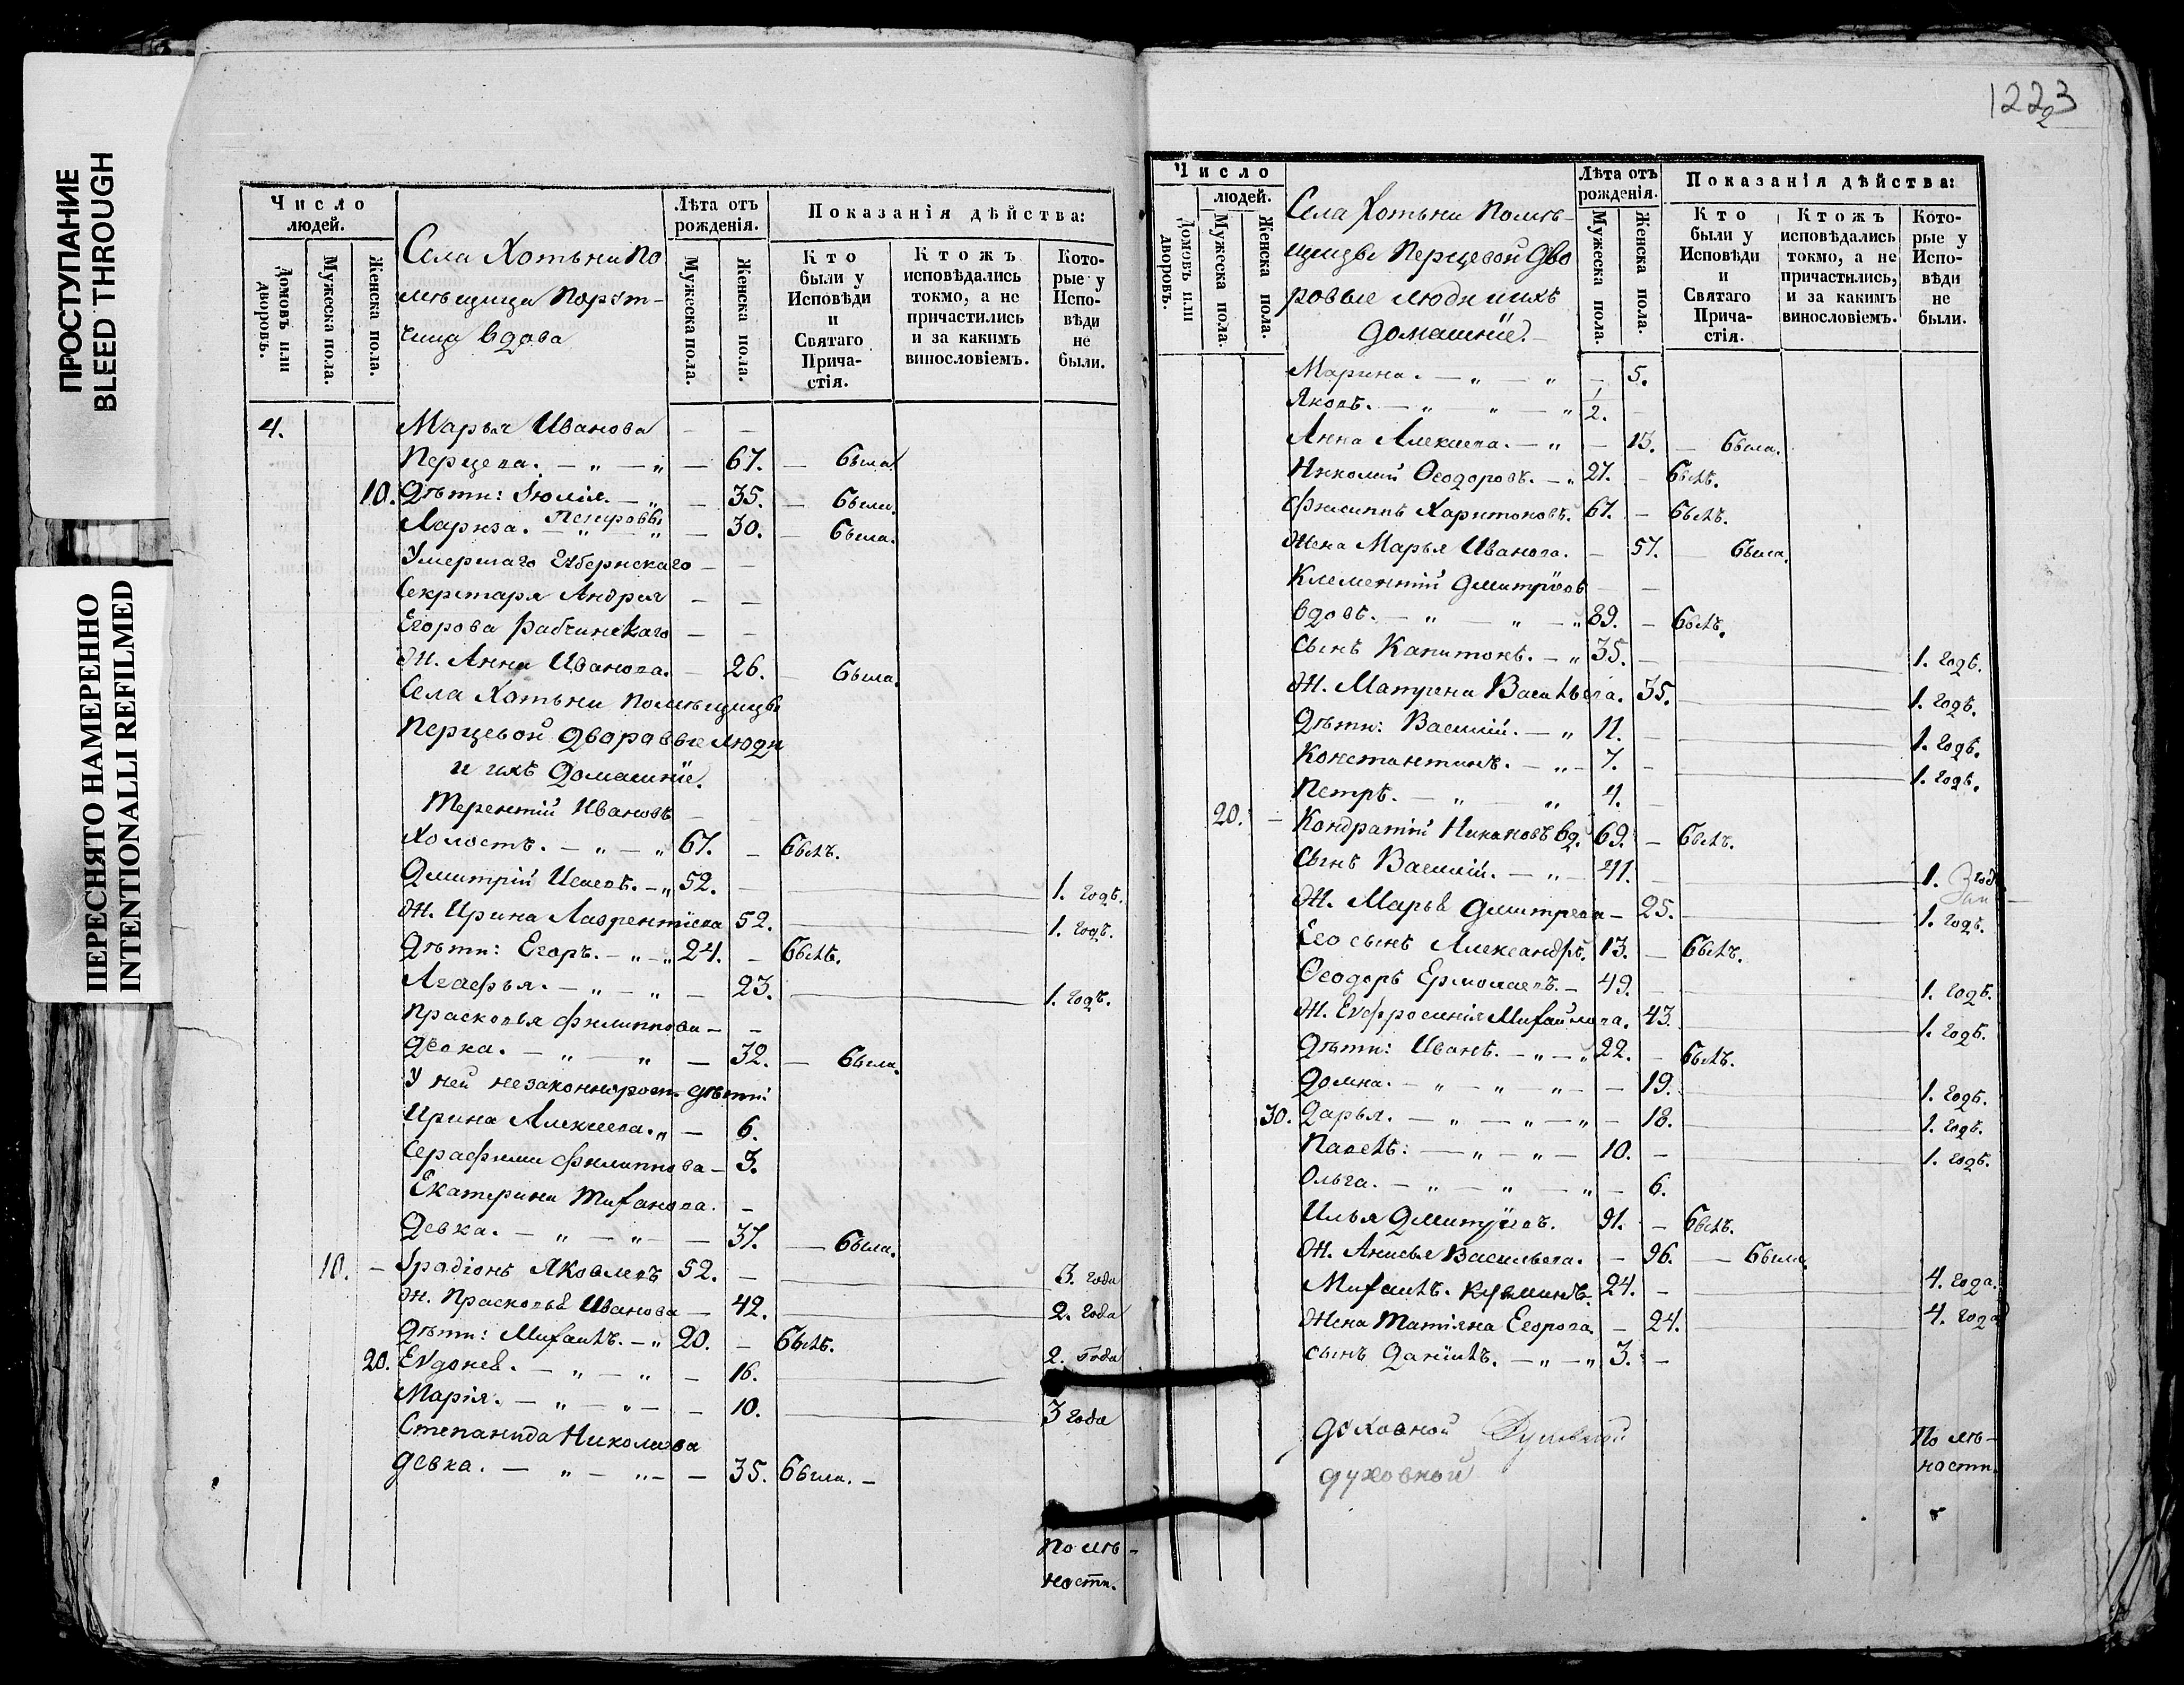 ПРОСТУПАНИЕ
BLEED THROUGH
ПЕРЕСНЯТО НАМЕРЕННО
INTENTIONALLI REFILMED
Число людей.
Домовъ или дворовъ.
Мужеска пола.
Женска пола.
Села Хотьни По
мѣщица Порут-
чица вдова
Лѣта отъ рожденія.
Мужеска пола.
Женска пола.
Показанія дѣйства:
Кто были у Исповѣди и Святаго Прича-стія.
Ктожъ исповѣдались токмо, а не причастились и за какимъ винословіемъ.
Кото-рые у Испо-вѣди не были.
4. Марья Иванова — —
Перцева. — „ — „ — 67. — была.
10. Дѣти: Іюлія. — „ — 35. — была.
Петровы
Лариза. — „ — „ — 30. — была.
Умершаго Губернскаго — —
Секретаря Андрея — —
Егорова Рабчинскаго — —
Ж. Анна Иванова. — 26. — была.
Села Хотьни помѣщицы
Перцевой дворовые люди
и ихъ домашніе.
Терентій Ивановъ — —
Холостъ. — „ — „ 67. — былъ.
Дмитрій Исаевъ. — „ 52. — 1. годъ.
Ж. Ирина Лаврентіева 52. 1. годъ.
Дѣти: Егоръ. — „ — „ 24. — былъ.
Агафья. — „ — „ — 23. 1. годъ.
Прасковья Филиппова — —
Девка. — „ — „ — 32. — была.
У ней незаконнорож. дѣти:
Ирина Алексеева. „ — 6.
Серафима Филиппова — 3.
Екатерина Тиханова. —
Девка. — „ — „ — 37. — была.
10. — Ірадіонъ Яковлевъ 52. — 3. года
Ж. Прасковья Иванова — 42. 2. года
Дѣти: Михаилъ. — „ 20. — былъ.
20. Евдокея. — „ — „ — 16. 2. года
Марія. — „ — „ — — 10. 3 года
Степанида Николаева
девка. — „ — „ — — 35. была. —
По мѣ-
ности.
1223
2
Число людей.
Домовъ или дворовъ.
Мужеска пола.
Женска пола.
Села Хотьни помѣ-
щицы Перцевой дво
ровые люди и ихъ
домашніе. —
Лѣта отъ рожденія.
Мужеска пола.
Женска пола.
Показанія дѣйства:
Кто были у Исповѣди и Святаго Прича-стія.
Ктожъ исповѣдались токмо, а не причастились, и за какимъ винословіемъ.
Кото-рые у Испо-вѣди не были.
Марина. — „ — „ — 5.
Яковъ. — „ — „ — „ 1/2. —
Анна Алексеева. — „ — 15. — была.
Николай Ѳеодоровъ. — „ 27. — былъ.
Филиппъ Харитоновъ. 67. — былъ.
Жена Марья Иванова. — 57. — была.
Клементій Дмитріевъ — —
вдовъ. — „ — „ — „ 89. — былъ.
Сынъ Капитонъ. — „ 35. — 1. годъ.
Ж. Матрена Васильева. 35. 1. годъ.
Дѣти: Василій. — „ 11. — 1. годъ.
Константинъ. — „ — 7. — 1. годъ.
Петръ. — „ — „ 4. —
20. — Кондратій Никановъ вд. 69. — былъ.
Сынъ Василій. — „ — 41. 1. годъ
Ж. Марья Дмитрева — 25. 1. годъ.
Его сынъ Александръ. 13. — былъ.
Ѳеодоръ Ермолаевъ. — 49. 1. годъ.
Ж. Евфросинія Михайлова. 43. 1. годъ.
Дѣти: Иванъ. — „ — „ 22. — былъ.
Домна. — „ — „ — „ — — 19. 1. годъ.
30. Дарья. — „ — „ — „ — 18. 1. годъ.
Павелъ: — „ — „ — 10. — 1. годъ.
Ольга. — „ — „ — „ — 6.
Илья Дмитріевъ. 91. — былъ.
Ж. Анисья Васильева. — 96. — была.
Михаилъ Кузминъ. 24. — 4. года.
Жена Татіяна Егорова. — 24. 4. года
Сынъ Даніилъ. — „ — „ 3. —
духовной
духовной
По мѣ-
ности.